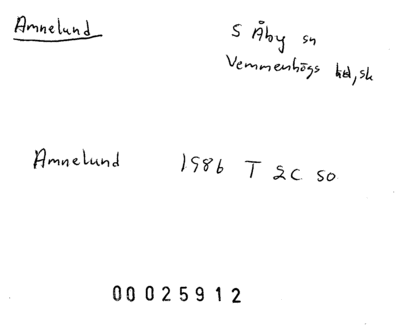 Amnelund
S Åby sn
Vemmenhögs hd, sk
Amnelund 1986 T 2C SO
00025912